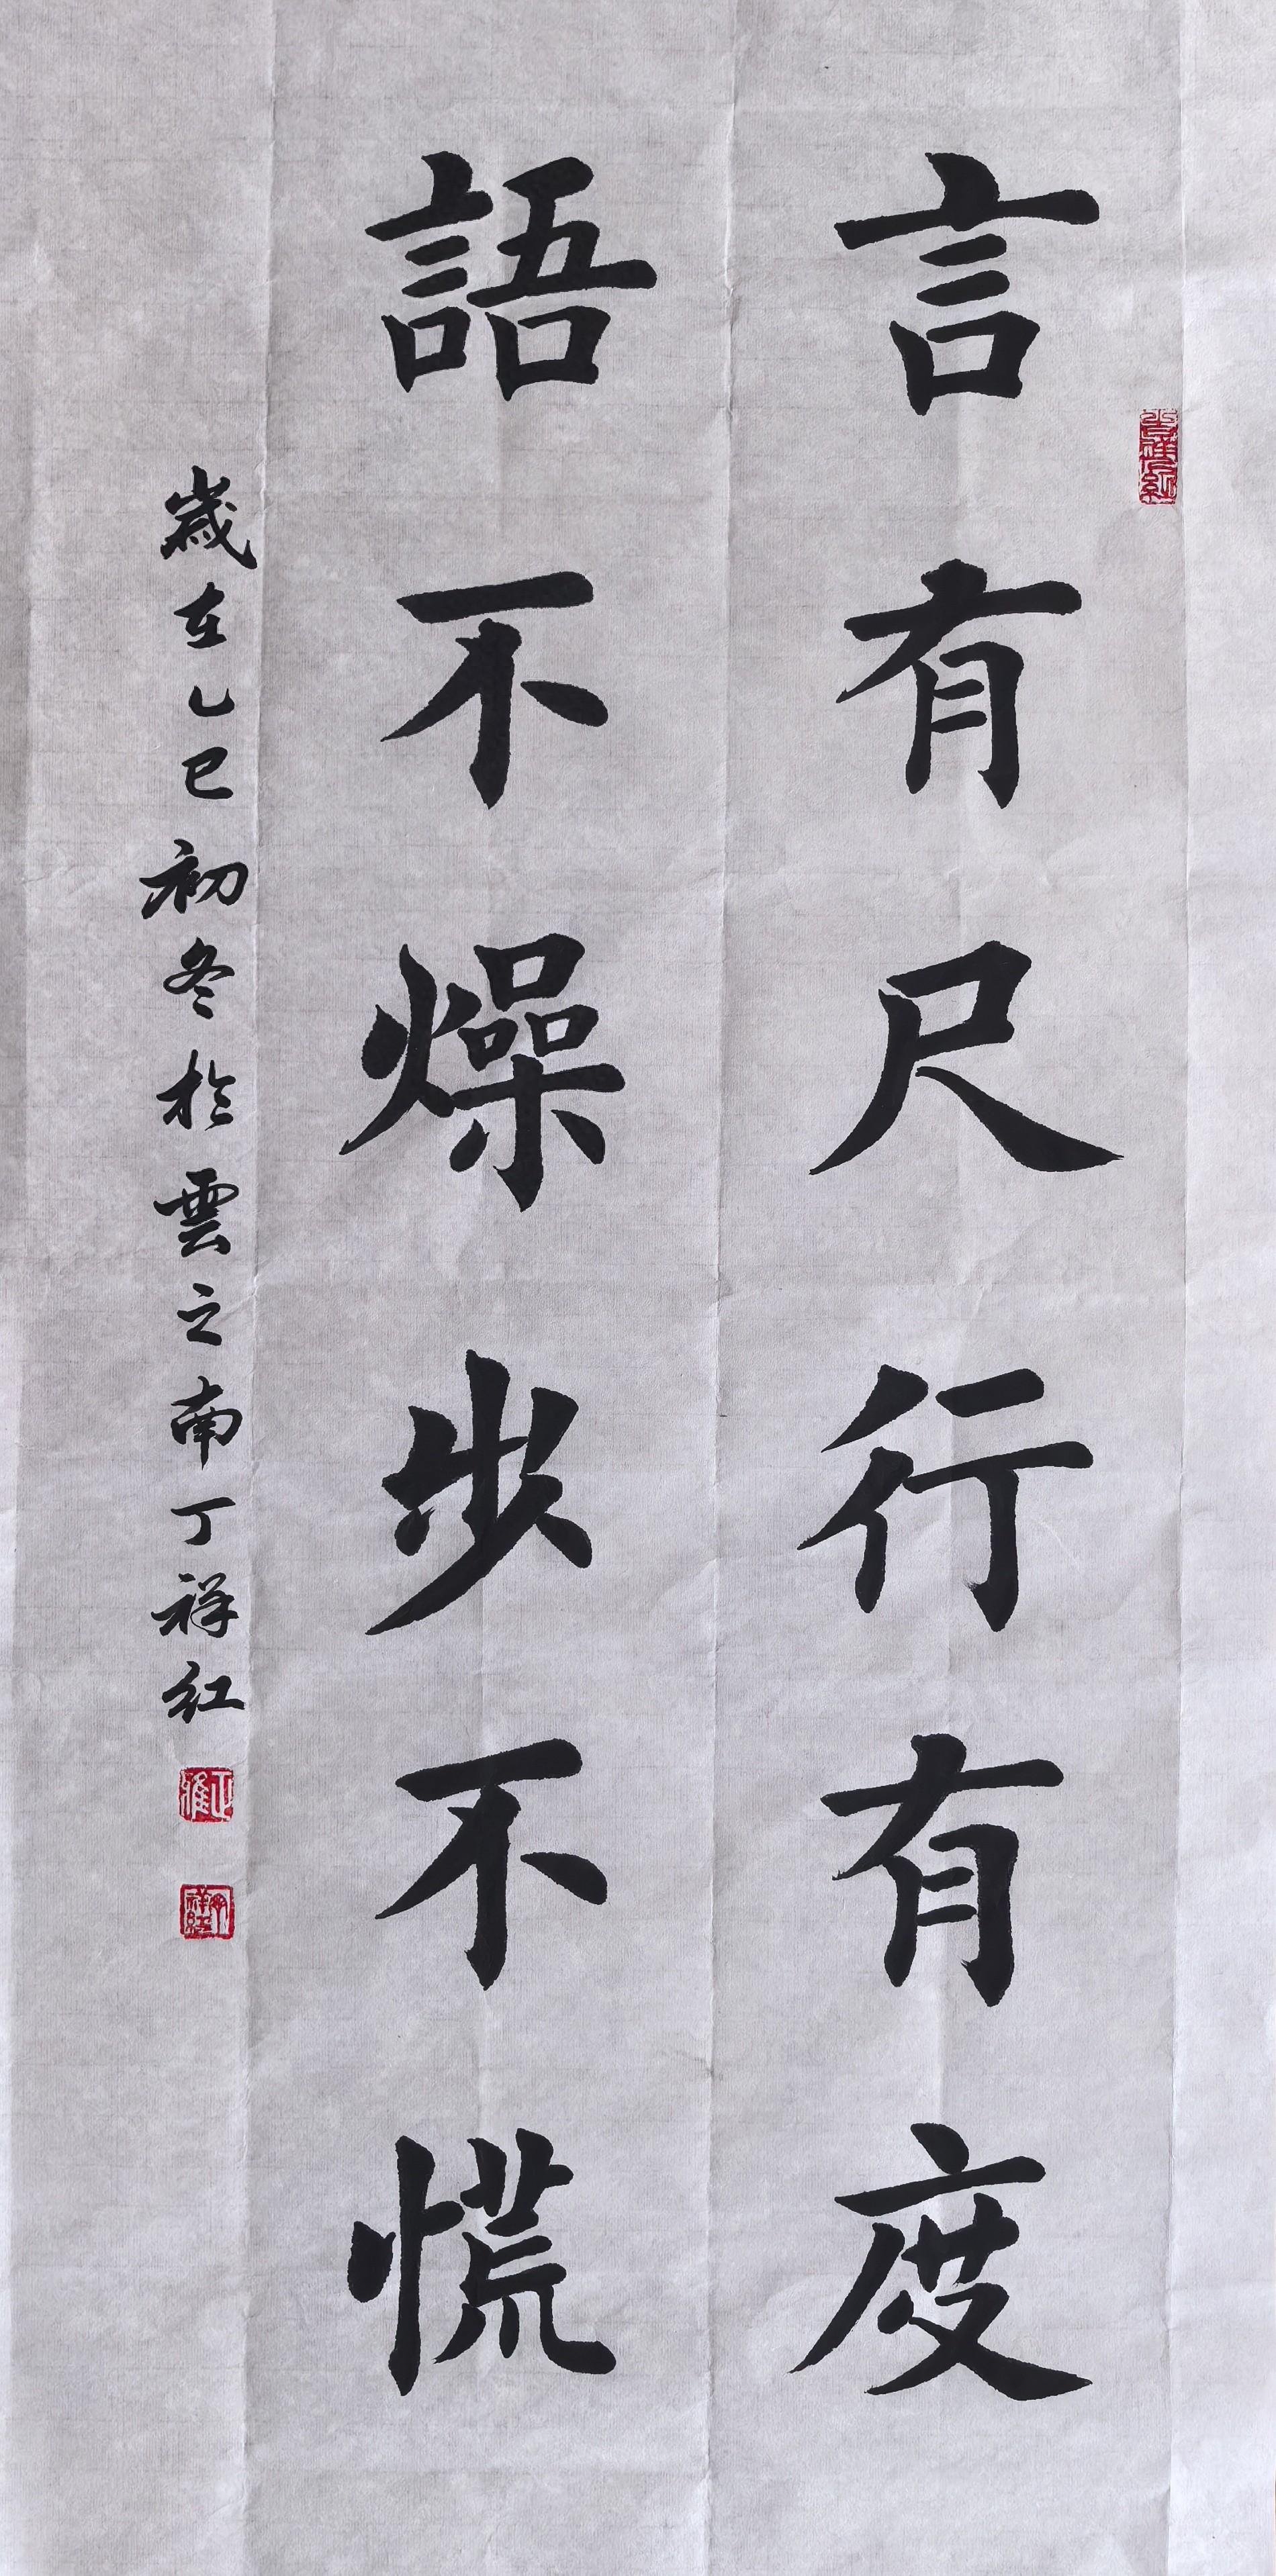 言有尺行有度
語不燥步不慌
歲在乙巳初冬於雲之南丁祥红